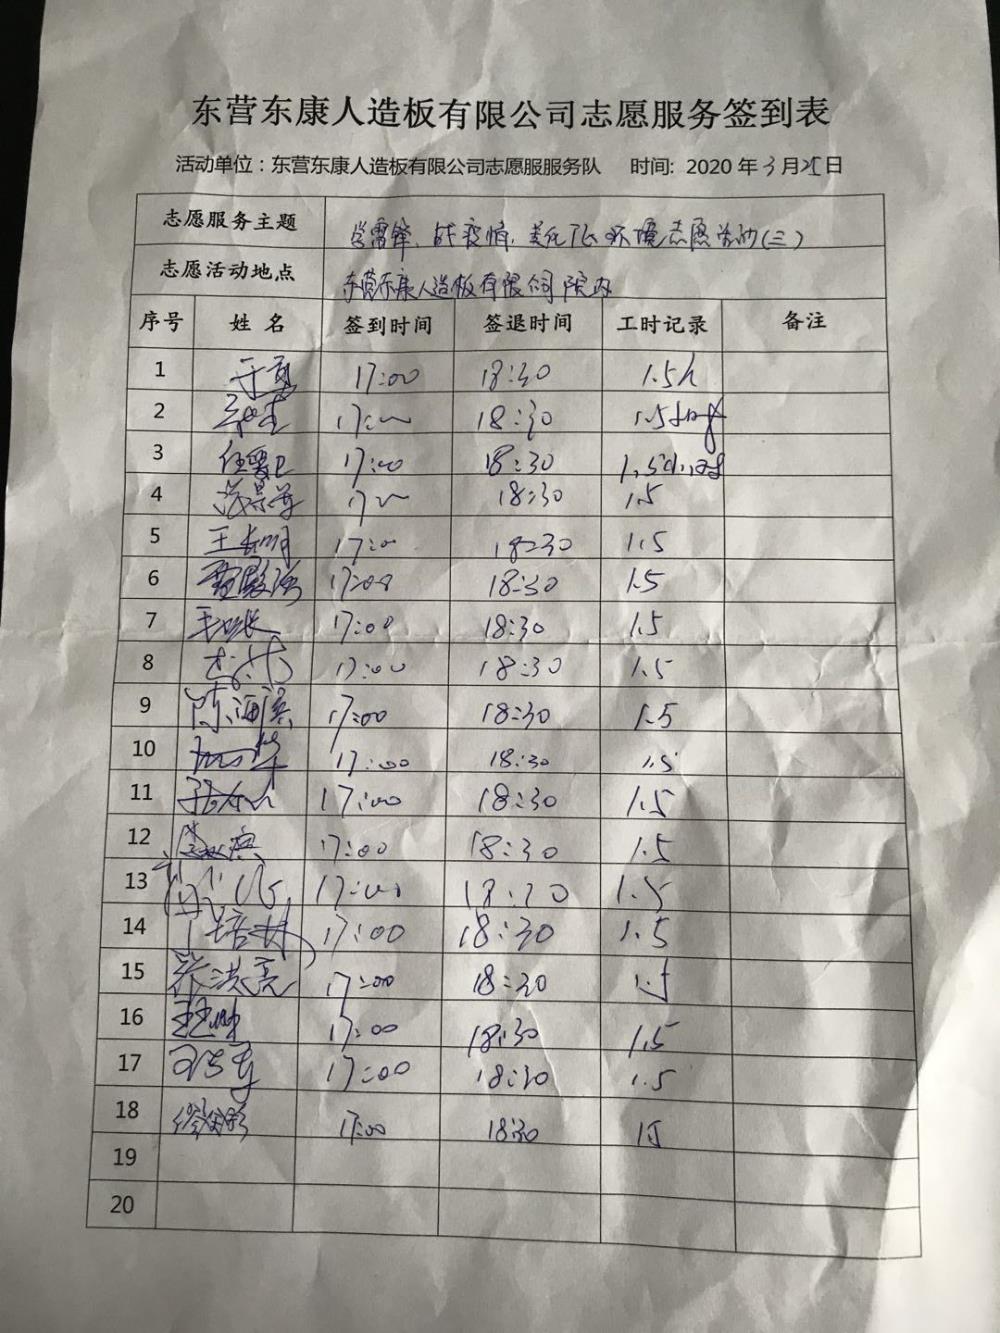 东营东康人造板有限公司志愿服务签到表
活动单位：东营东康人造板有限公司志愿服服务队 时间: 2020 年 3 月 25 日
志愿服务主题 学雷锋、战疫情、美化厂区环境志愿活动(三)
志愿活动地点 东营东康人造板有限公司院内
序号 姓 名 签到时间 签退时间 工时记录 备注
1 17:00 18:30 1.5h
2 17:00 18:30 1.5小时
3 17:00 18:30 1.5小时
4 18:30 1.5
5 王长明 17:00 18:30 1.5
6 17:00 18:30 1.5
7 17:00 18:30 1.5
8 17:00 18:30 1.5
9 陈海滨 17:00 18:30 1.5
10 17:00 18:30 1.5
11 17:00 18:30 1.5
12 17:00 18:30 1.5
13 17:00 18:30 1.5
14 17:00 18:30 1.5
15 张洪亮 17:00 18:30 1.5
16 17:00 18:30 1.5
17 17:00 18:30 1.5
18 17:00 18:30 1.5
19
20